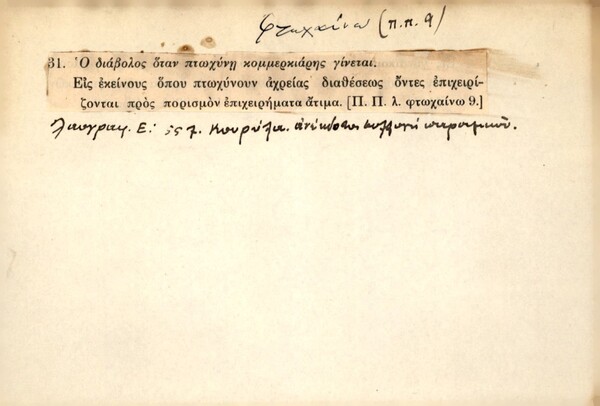 φτωχαίνω (π.π. 9)
31. Ὁ διάβολος ὅταν πτωχύνῃ κομμερκιάρης γίνεται.
Εἰς ἐκείνους ὅπου πτωχύνουν ἀχρείας διαθέσεως ὄντες ἐπιχειρί-
ζονται πρὸς πορισμὸν ἐπιχειρήματα ἄτιμα. [Π. Π. λ. φτωχαίνω 9.]
Λαογραφ. Ε΄ 557. Κουρύλα. ἀνέκδοτος συλλογή παροιμιῶν.